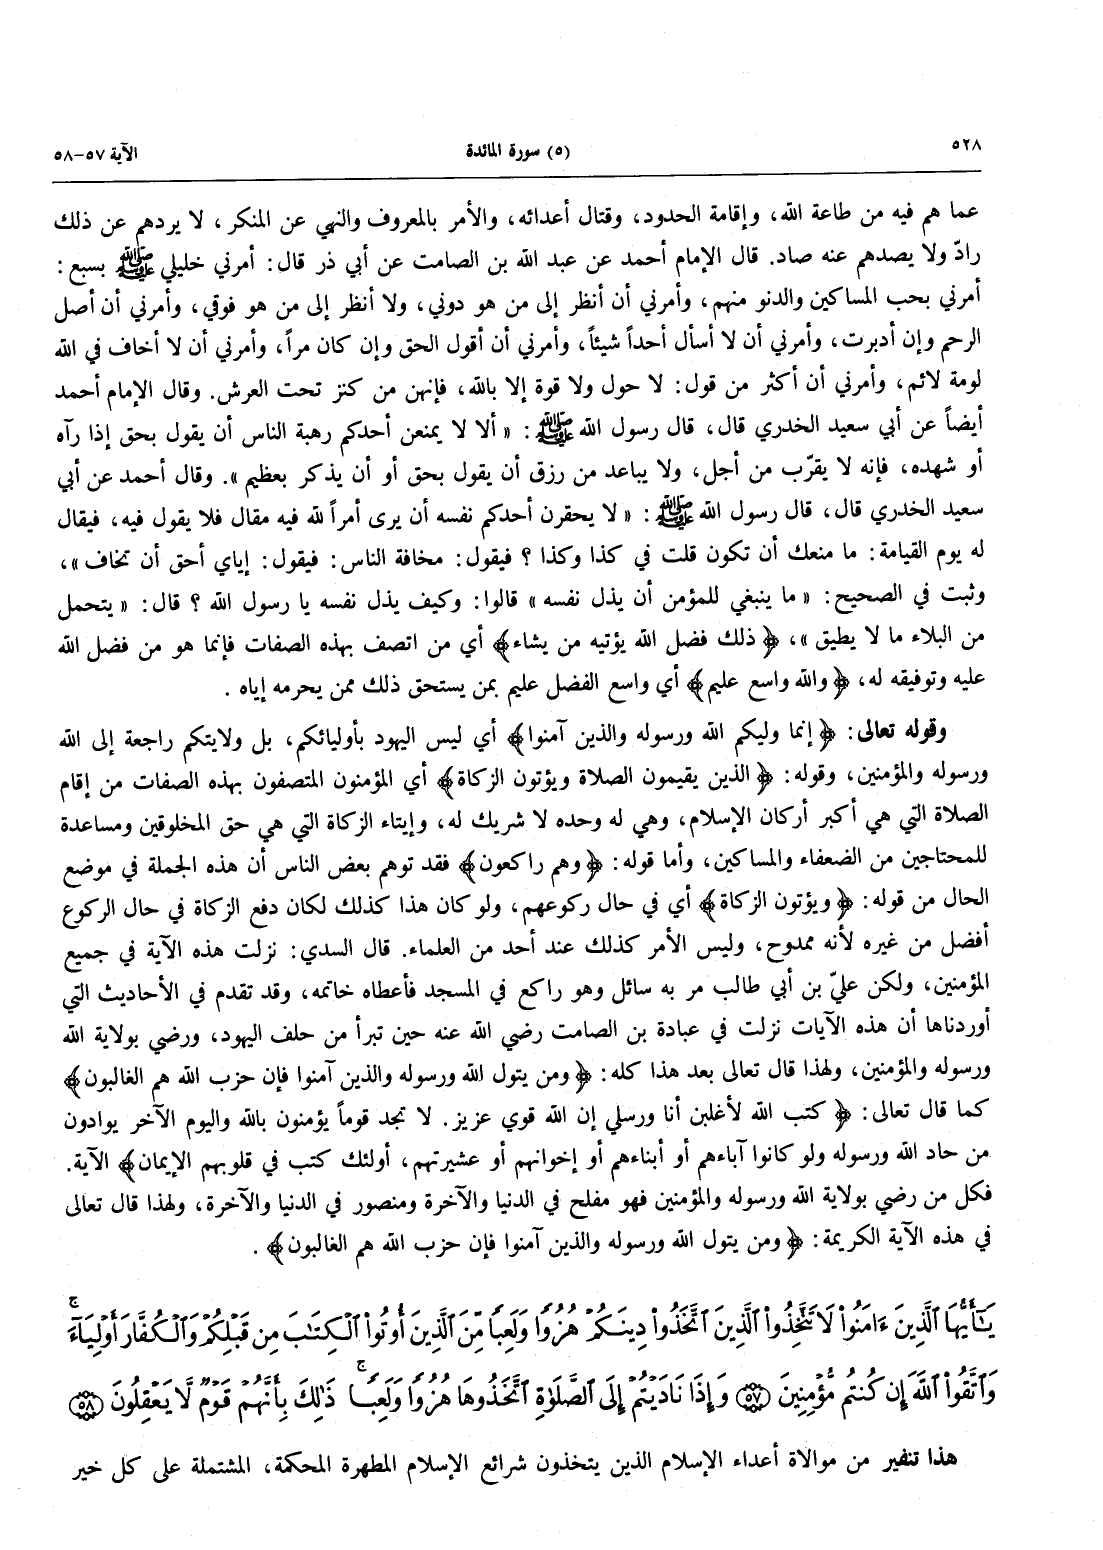 ٥٢٨ (٥) سورة المائدة الآية ٥٧-٥٨
عما هم فيه من طاعة الله، وإقامة الحدود، وقتال أعدائه، والأمر بالمعروف والنهي عن المنكر، لا يردهم عن ذلك
رادّ ولا يصدهم عنه صاد. قال الإمام أحمد عن عبد الله بن الصامت عن أبي ذر قال: أمرني خليلي ﷺ بسبع:
أمرني بحب المساكين والدنو منهم، وأمرني أن أنظر إلى من هو دوني، ولا أنظر إلى من هو فوقي، وأمرني أن أصل
الرحم وإن أدبرت، وأمرني أن لا أسأل أحداً شيئاً، وأمرني أن أقول الحق وإن كان مراً، وأمرني أن لا أخاف في الله
لومة لائم، وأمرني أن أكثر من قول: لا حول ولا قوة إلا بالله، فإنهن من كنز تحت العرش. وقال الإمام أحمد
أيضاً عن أبي سعيد الخدري قال، قال رسول الله ﷺ: « ألا لا يمنعن أحدكم رهبة الناس أن يقول بحق إذا رآه
أو شهده، فإنه لا يقرّب من أجل، ولا يباعد من رزق أن يقول بحق أو أن يذكر بعظيم ». وقال أحمد عن أبي
سعيد الخدري قال، قال رسول الله ﷺ: « لا يحقرن أحدكم نفسه أن يرى أمراً لله فيه مقال فلا يقول فيه، فيقال
له يوم القيامة: ما منعك أن تكون قلت في كذا وكذا ؟ فيقول: مخافة الناس: فيقول: إياي أحق أن تخاف »،
وثبت في الصحيح: « ما ينبغي للمؤمن أن يذل نفسه » قالوا: وكيف يذل نفسه يا رسول الله ؟ قال: « يتحمل
من البلاء ما لا يطيق »، ﴿ ذلك فضل الله يؤتيه من يشاء﴾ أي من اتصف بهذه الصفات فإنما هو من فضل الله
عليه وتوفيقه له، ﴿ والله واسع عليم﴾ أي واسع الفضل عليم بمن يستحق ذلك ممن يحرمه إياه .
وقوله تعالى: ﴿ إنما وليكم الله ورسوله والذين آمنوا﴾ أي ليس اليهود بأوليائكم، بل ولايتكم راجعة إلى الله
ورسوله والمؤمنين، وقوله: ﴿ الذين يقيمون الصلاة ويؤتون الزكاة﴾ أي المؤمنون المتصفون بهذه الصفات من إقام
الصلاة التي هي أكبر أركان الإسلام، وهي له وحده لا شريك له، وإيتاء الزكاة التي هي حق المخلوقين ومساعدة
للمحتاجين من الضعفاء والمساكين، وأما قوله: ﴿ وهم راكعون﴾ فقد توهم بعض الناس أن هذه الجملة في موضع
الحال من قوله: ﴿ ويؤتون الزكاة﴾ أي في حال ركوعهم، ولو كان هذا كذلك لكان دفع الزكاة في حال الركوع
أفضل من غيره لأنه ممدوح، وليس الأمر كذلك عند أحد من العلماء. قال السدي: نزلت هذه الآية في جميع
المؤمنين، ولكن عليّ بن أبي طالب مر به سائل وهو راكع في المسجد فأعطاه خاتمه، وقد تقدم في الأحاديث التي
أوردناها أن هذه الآيات نزلت في عبادة بن الصامت رضي الله عنه حين تبرأ من حلف اليهود، ورضي بولاية الله
ورسوله والمؤمنين، ولهذا قال تعالى بعد هذا كله: ﴿ ومن يتول الله ورسوله والذين آمنوا فإن حزب الله هم الغالبون﴾
كما قال تعالى: ﴿ كتب الله لأغلبن أنا ورسلي إن الله قوي عزيز. لا تجد قوماً يؤمنون بالله واليوم الآخر يوادون
من حاد الله ورسوله ولو كانوا آباءهم أو أبناءهم أو إخوانهم أو عشيرتهم، أولئك كتب في قلوبهم الإيمان﴾ الآية.
فكل من رضي بولاية الله ورسوله والمؤمنين فهو مفلح في الدنيا والآخرة ومنصور في الدنيا والآخرة، ولهذا قال تعالى
في هذه الآية الكريمة: ﴿ ومن يتول الله ورسوله والذين آمنوا فإن حزب الله هم الغالبون﴾ .
يَـٰٓأَيُّهَا ٱلَّذِينَ ءَامَنُوا۟ لَا تَتَّخِذُوا۟ ٱلَّذِينَ ٱتَّخَذُوا۟ دِينَكُمْ هُزُوًا وَلَعِبًا مِّنَ ٱلَّذِينَ أُوتُوا۟ ٱلْكِتَـٰبَ مِن قَبْلِكُمْ وَٱلْكُفَّارَ أَوْلِيَآءَ ۚ
وَٱتَّقُوا۟ ٱللَّهَ إِن كُنتُم مُّؤْمِنِينَ ٥٧ وَإِذَا نَادَيْتُمْ إِلَى ٱلصَّلَوٰةِ ٱتَّخَذُوهَا هُزُوًا وَلَعِبًا ۚ ذَٰلِكَ بِأَنَّهُمْ قَوْمٌ لَّا يَعْقِلُونَ ٥٨
هذا تنفير من موالاة أعداء الإسلام الذين يتخذون شرائع الإسلام المطهرة المحكمة، المشتملة على كل خير